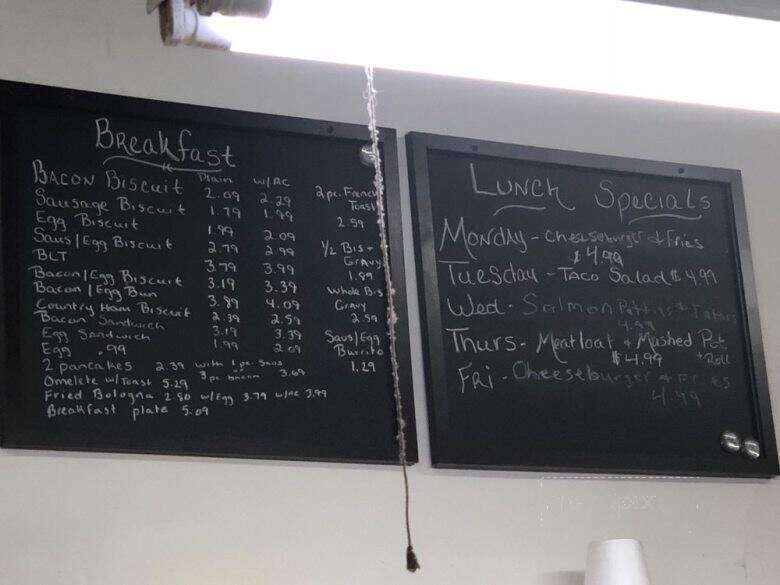 Breakfast
Plain w/AC
BACON Biscuit 2.09 2.29
Sausage Biscuit 1.79 1.99
Egg Biscuit 1.99 2.09
Saus/Egg Biscuit 2.79 2.99
BLT 3.79 3.99
Bacon/Egg Biscuit 3.19 3.39
Bacon/Egg Bun 3.89 4.09
Country Ham Biscuit 2.39 2.59
Bacon Sandwich 3.19 3.39
Egg Sandwich 1.99 2.09
Egg .99
2 pancakes 2.39 with 1 pc Saus
2 pc bacon 3.69
Omelete w/Toast 5.29
Fried Bologna 2.80 w/Egg 3.79 w/AC 3.99
Breakfast plate 5.09
2 pc. French
Toast
2.59
1/2 Bis +
Gravy
1.89
Whole Bis
Gravy
2.59
Saus/Egg
Burrito
1.29
Lunch Specials
Monday - Cheeseburger + Fries
$4.99
Tuesday - Taco Salad $4.99
Wed - Salmon Patties +
4.99
Thurs - Meatloaf + Mashed Pot
$4.99 + Roll
Fri - Cheeseburger + Fries
4.99